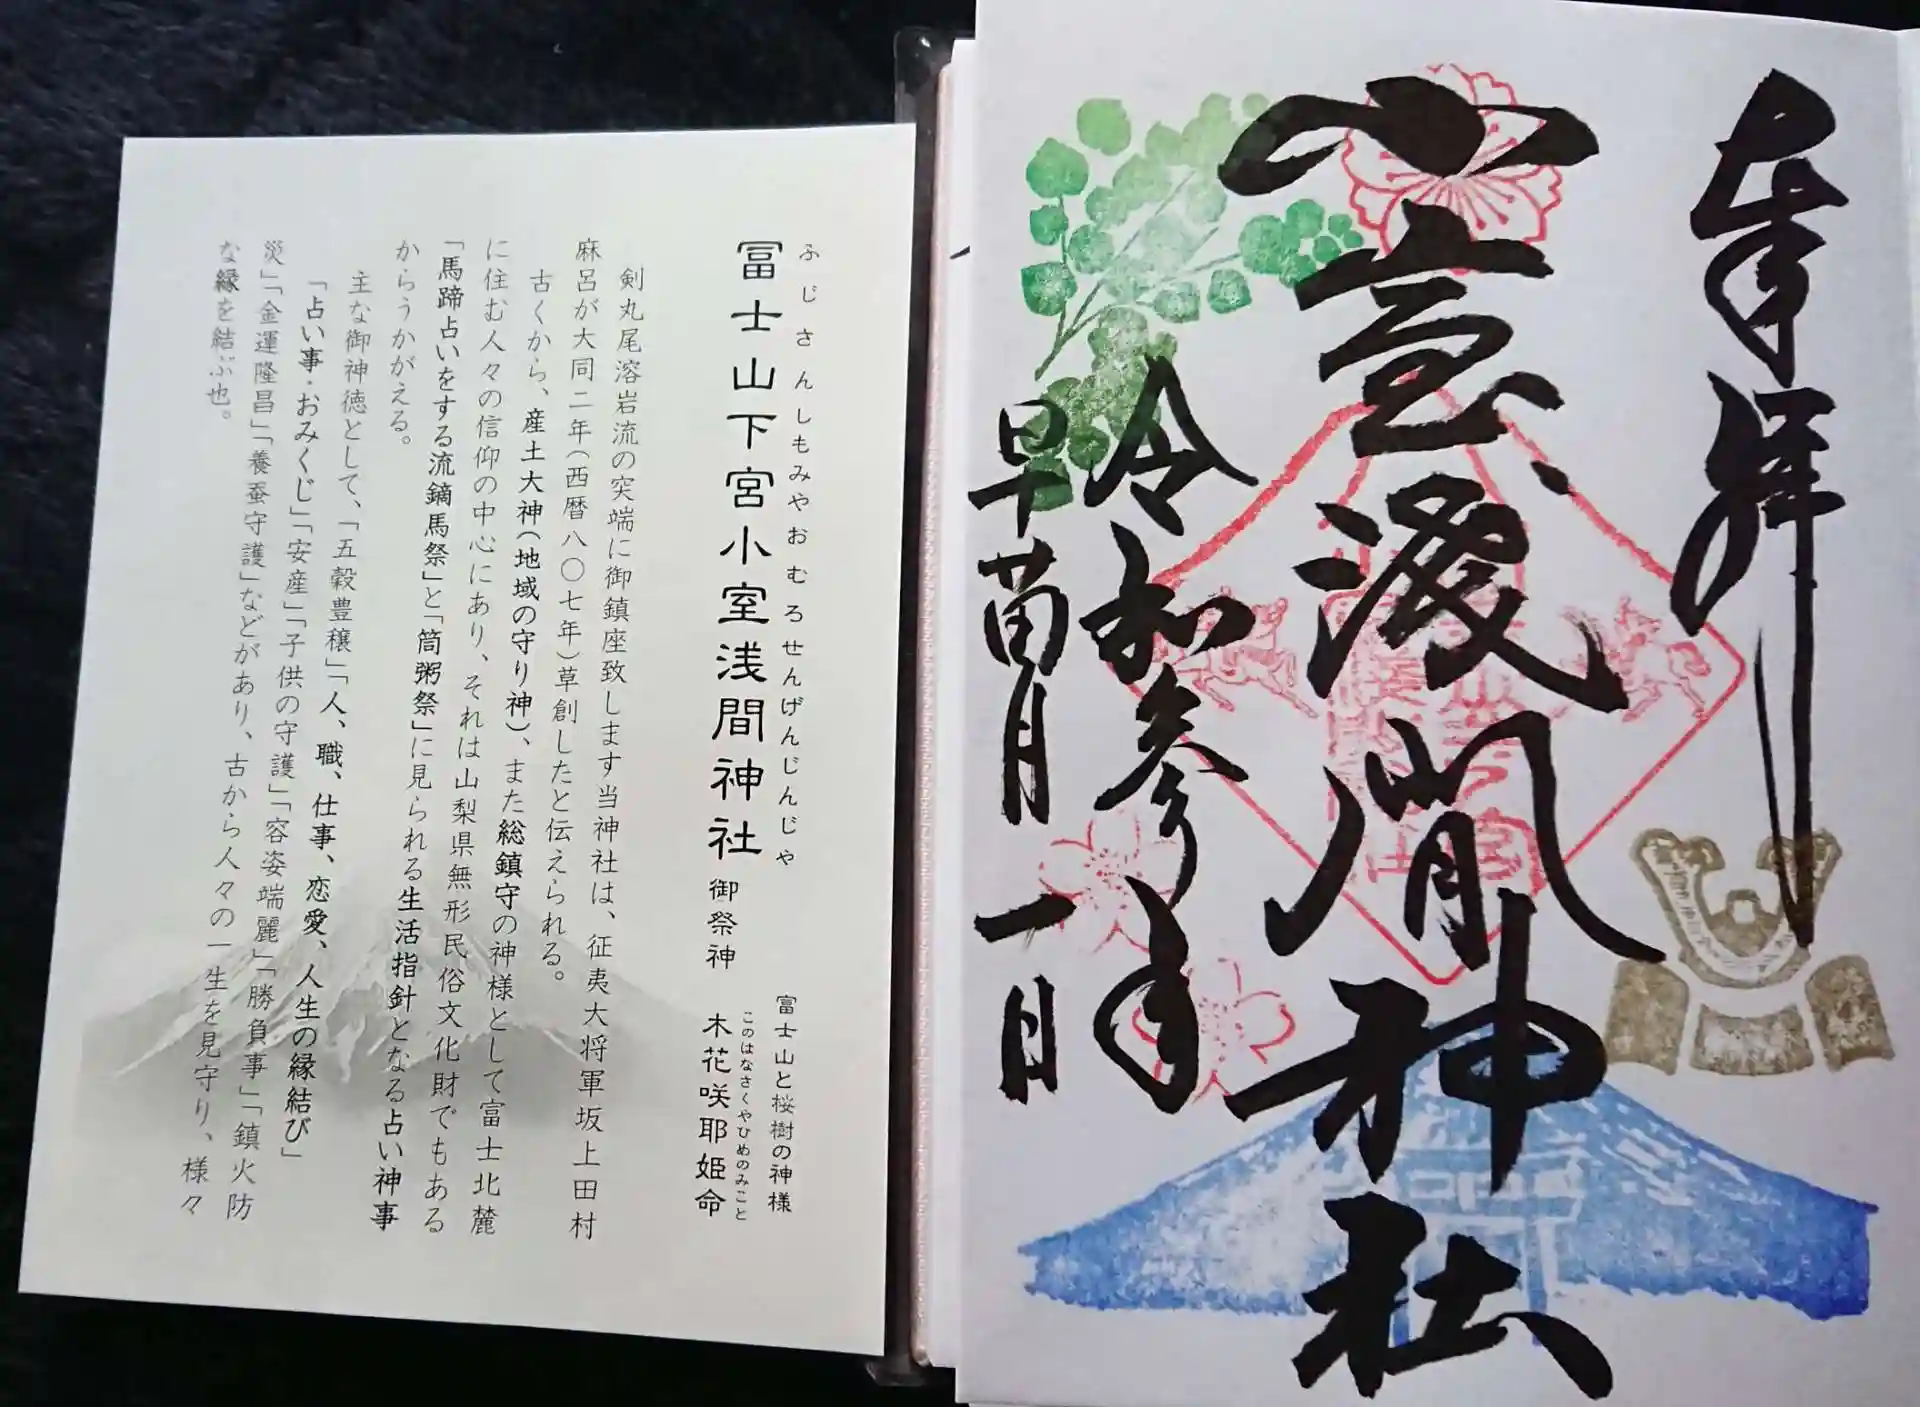 奉拝
小室浅間神社
令和参年
早苗月一日
ふじさんしもみやおむろせんげんじんじゃ
冨士山下宮小室浅間神社
御祭神
富士山と桜樹の神様
このはなさくやひめのみこと
木花咲耶姫命
剣丸尾溶岩流の突端に御鎮座致します当神社は、征夷大将軍坂上田村
麻呂が大同二年(西暦八〇七年)草創したと伝えられる。
古くから、産土大神(地域の守り神)、また総鎮守の神様として富士北麓
に住む人々の信仰の中心にあり、それは山梨県無形民俗文化財でもある
「馬蹄占いをする流鏑馬祭」と「筒粥祭」に見られる生活指針となる占い神事
からうかがえる。
主な御神徳として、「五穀豊穣」「人、職、仕事、恋愛、人生の縁結び」
「占い事・おみくじ」「安産」「子供の守護」「容姿端麗」「勝負事」「鎮火防
災」「金運隆昌」「養蚕守護」などがあり、古から人々の一生を見守り、様々
な縁を結ぶ也。